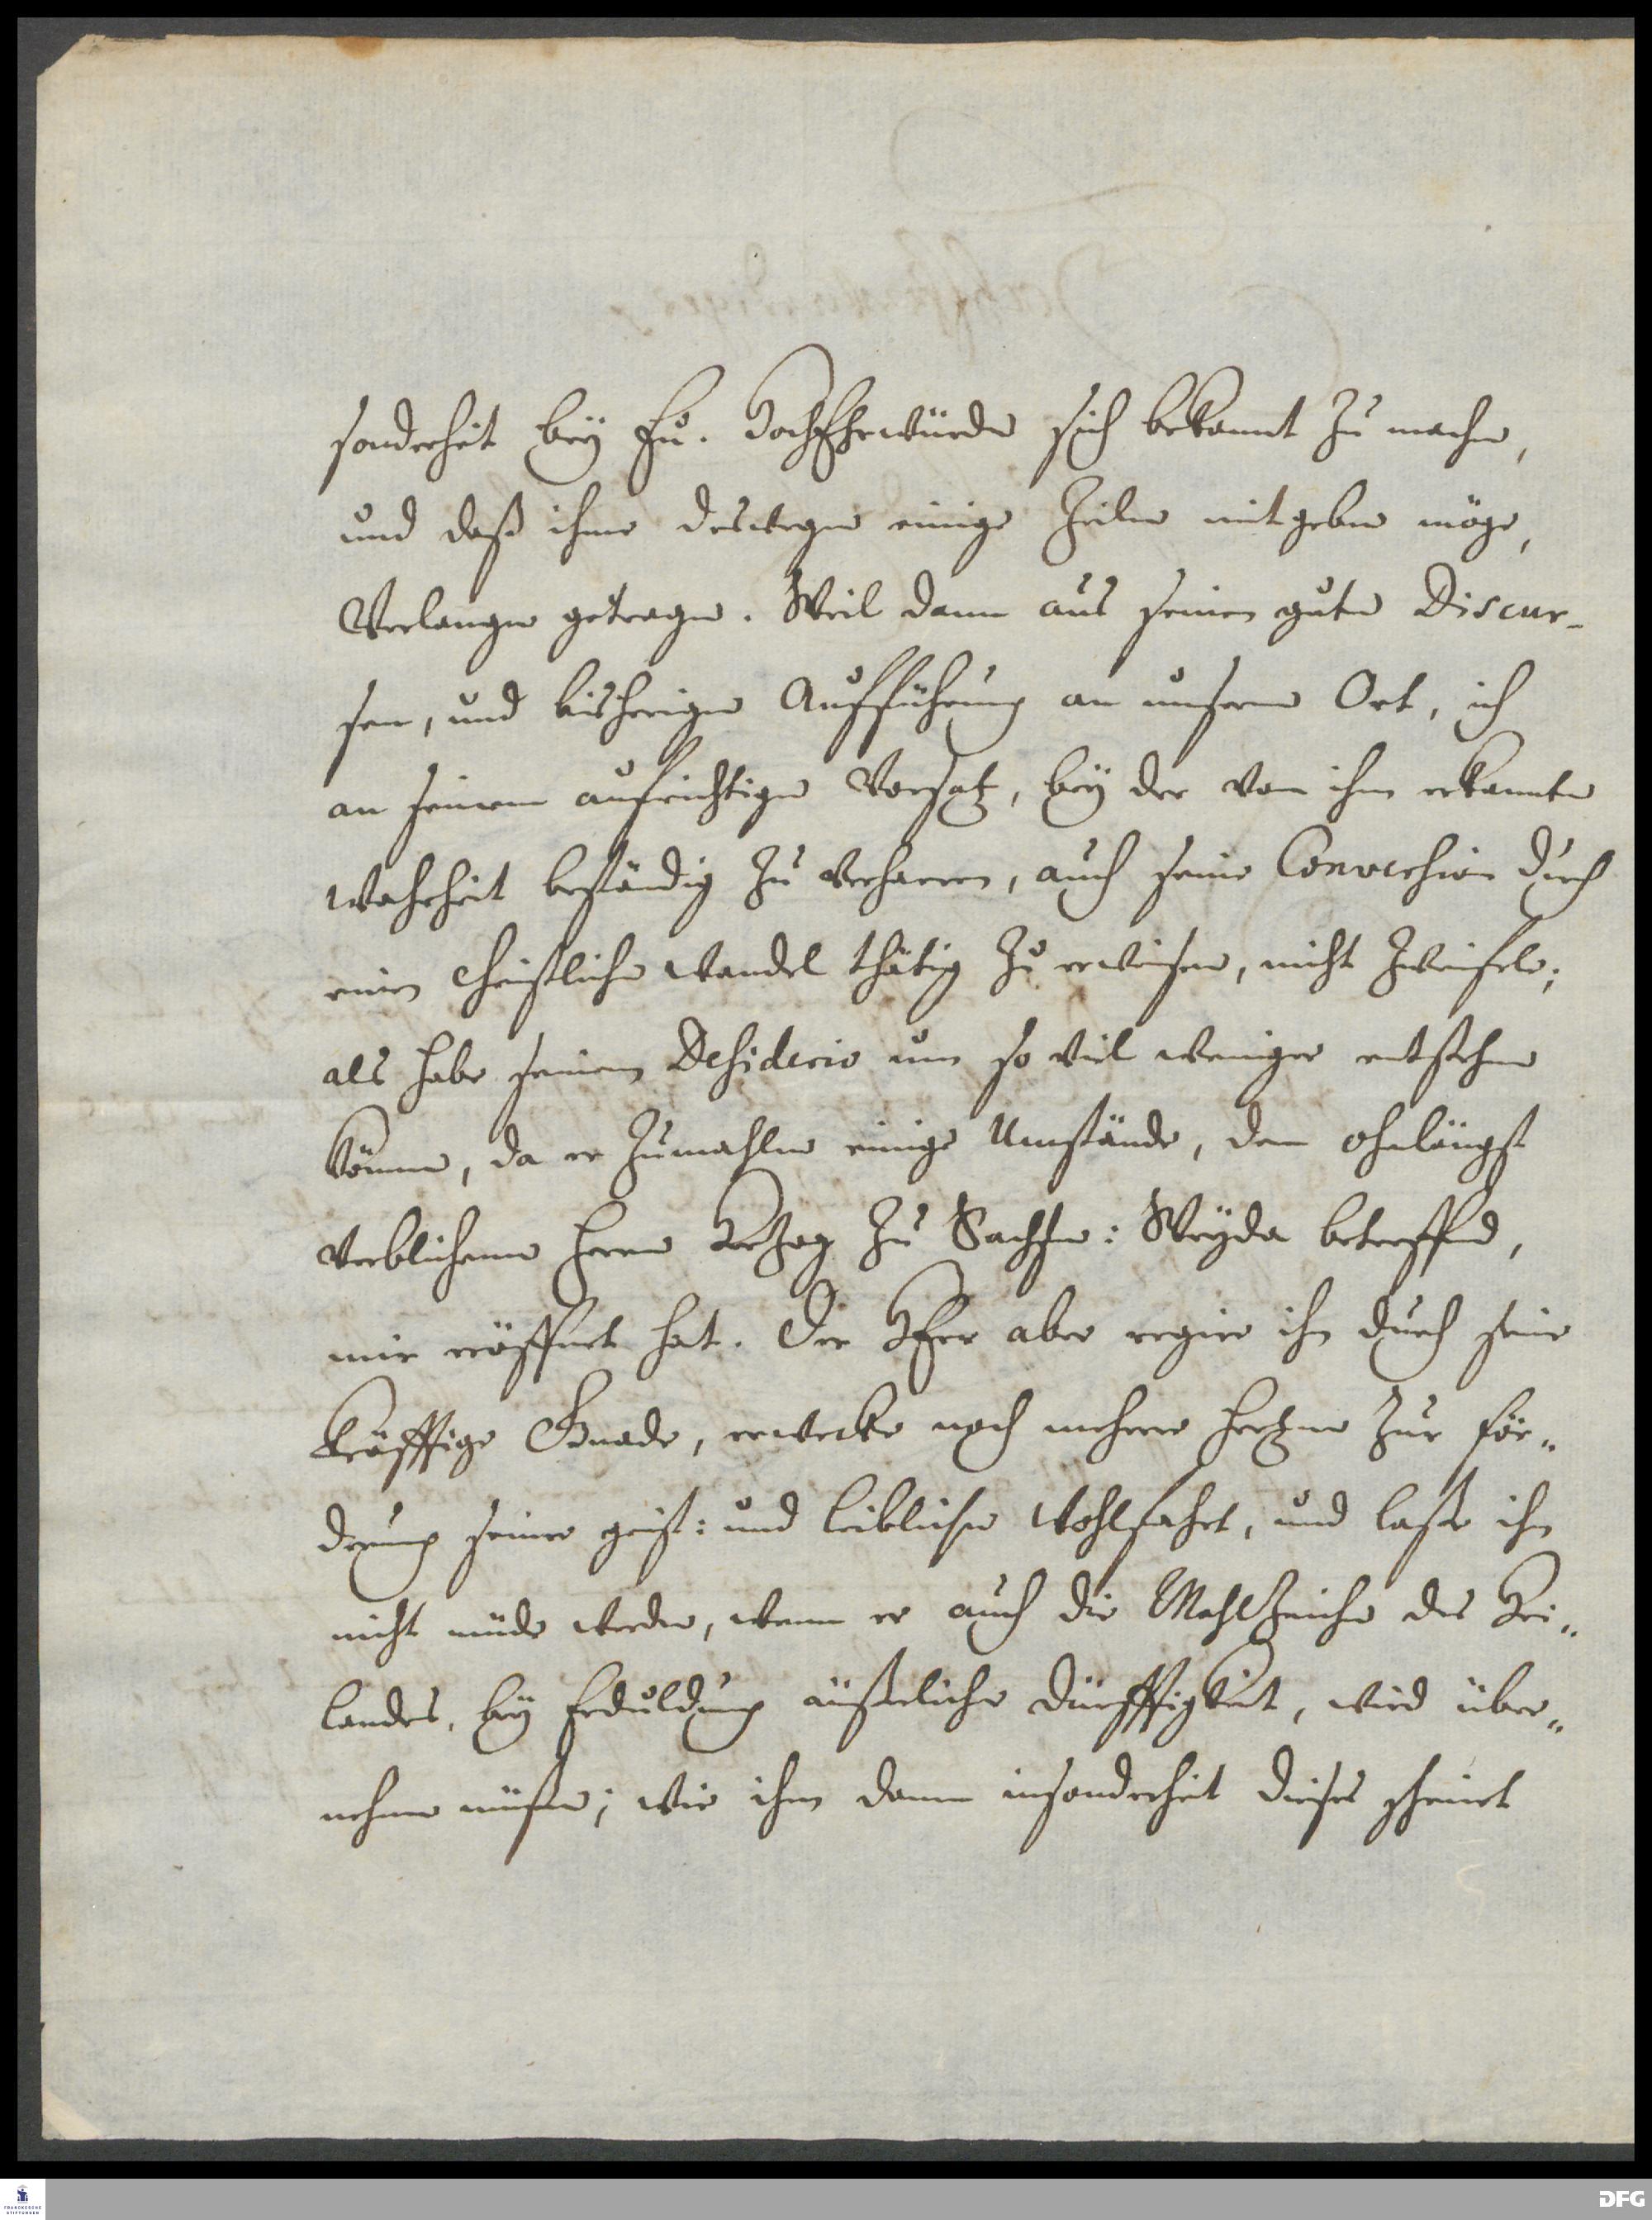 sonderheit bey Eu. HochEhrwürden sich bekannt zu machen,
und daß ihme deswegen einige Zeilen mitgeben möge,
Verlangen getragen. Weil dann aus seinen guten Discur-
sen, und bisherigen Aufführung an unserm Ort, ich
an seinem aufrichtigen Vorsatz, bey der von ihm erkannten
Wahrheit beständig zu verharren, auch seine Conversion durch
einen christlichen Wandel thätig zu erweisen, nicht zweifele;
als habe seinem Desiderio um so viel weniger entstehen
können, da er zumahlen einige Umstände, den ohnlängst
verblichenen Herrn Hertzog zu Sachsen: Weyda betreffend,
mir eröffnet hat. Der HErr aber regire ihn durch seine
kräfftige Gnade, erwecke noch mehrere Hertzen zur för„
derung seiner geist: und leiblichen Wohlfahrt, und laße ihn
nicht müde werden, wenn er auch die Mahlzeichen des Hei„
landes, bey Erduldung äußerlicher Dürfftigkeit, wird über„
nehmen müßen; wie ihm dann insonderheit dieses scheinet
FRANCKESCHE
STIFTUNGEN
DFG